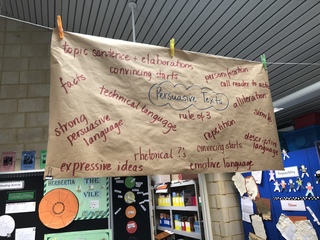 topic sentence + elaborations
convincing starts
personification
facts
call reader to action
Persuasive Texts
technical language
alliteration
rule of 3
strong
persuasive
language
repetition
descriptive
language
convincing starts
rhetorical ?s
expressive ideas
emotive language
HERBERTIA
THE
VILE